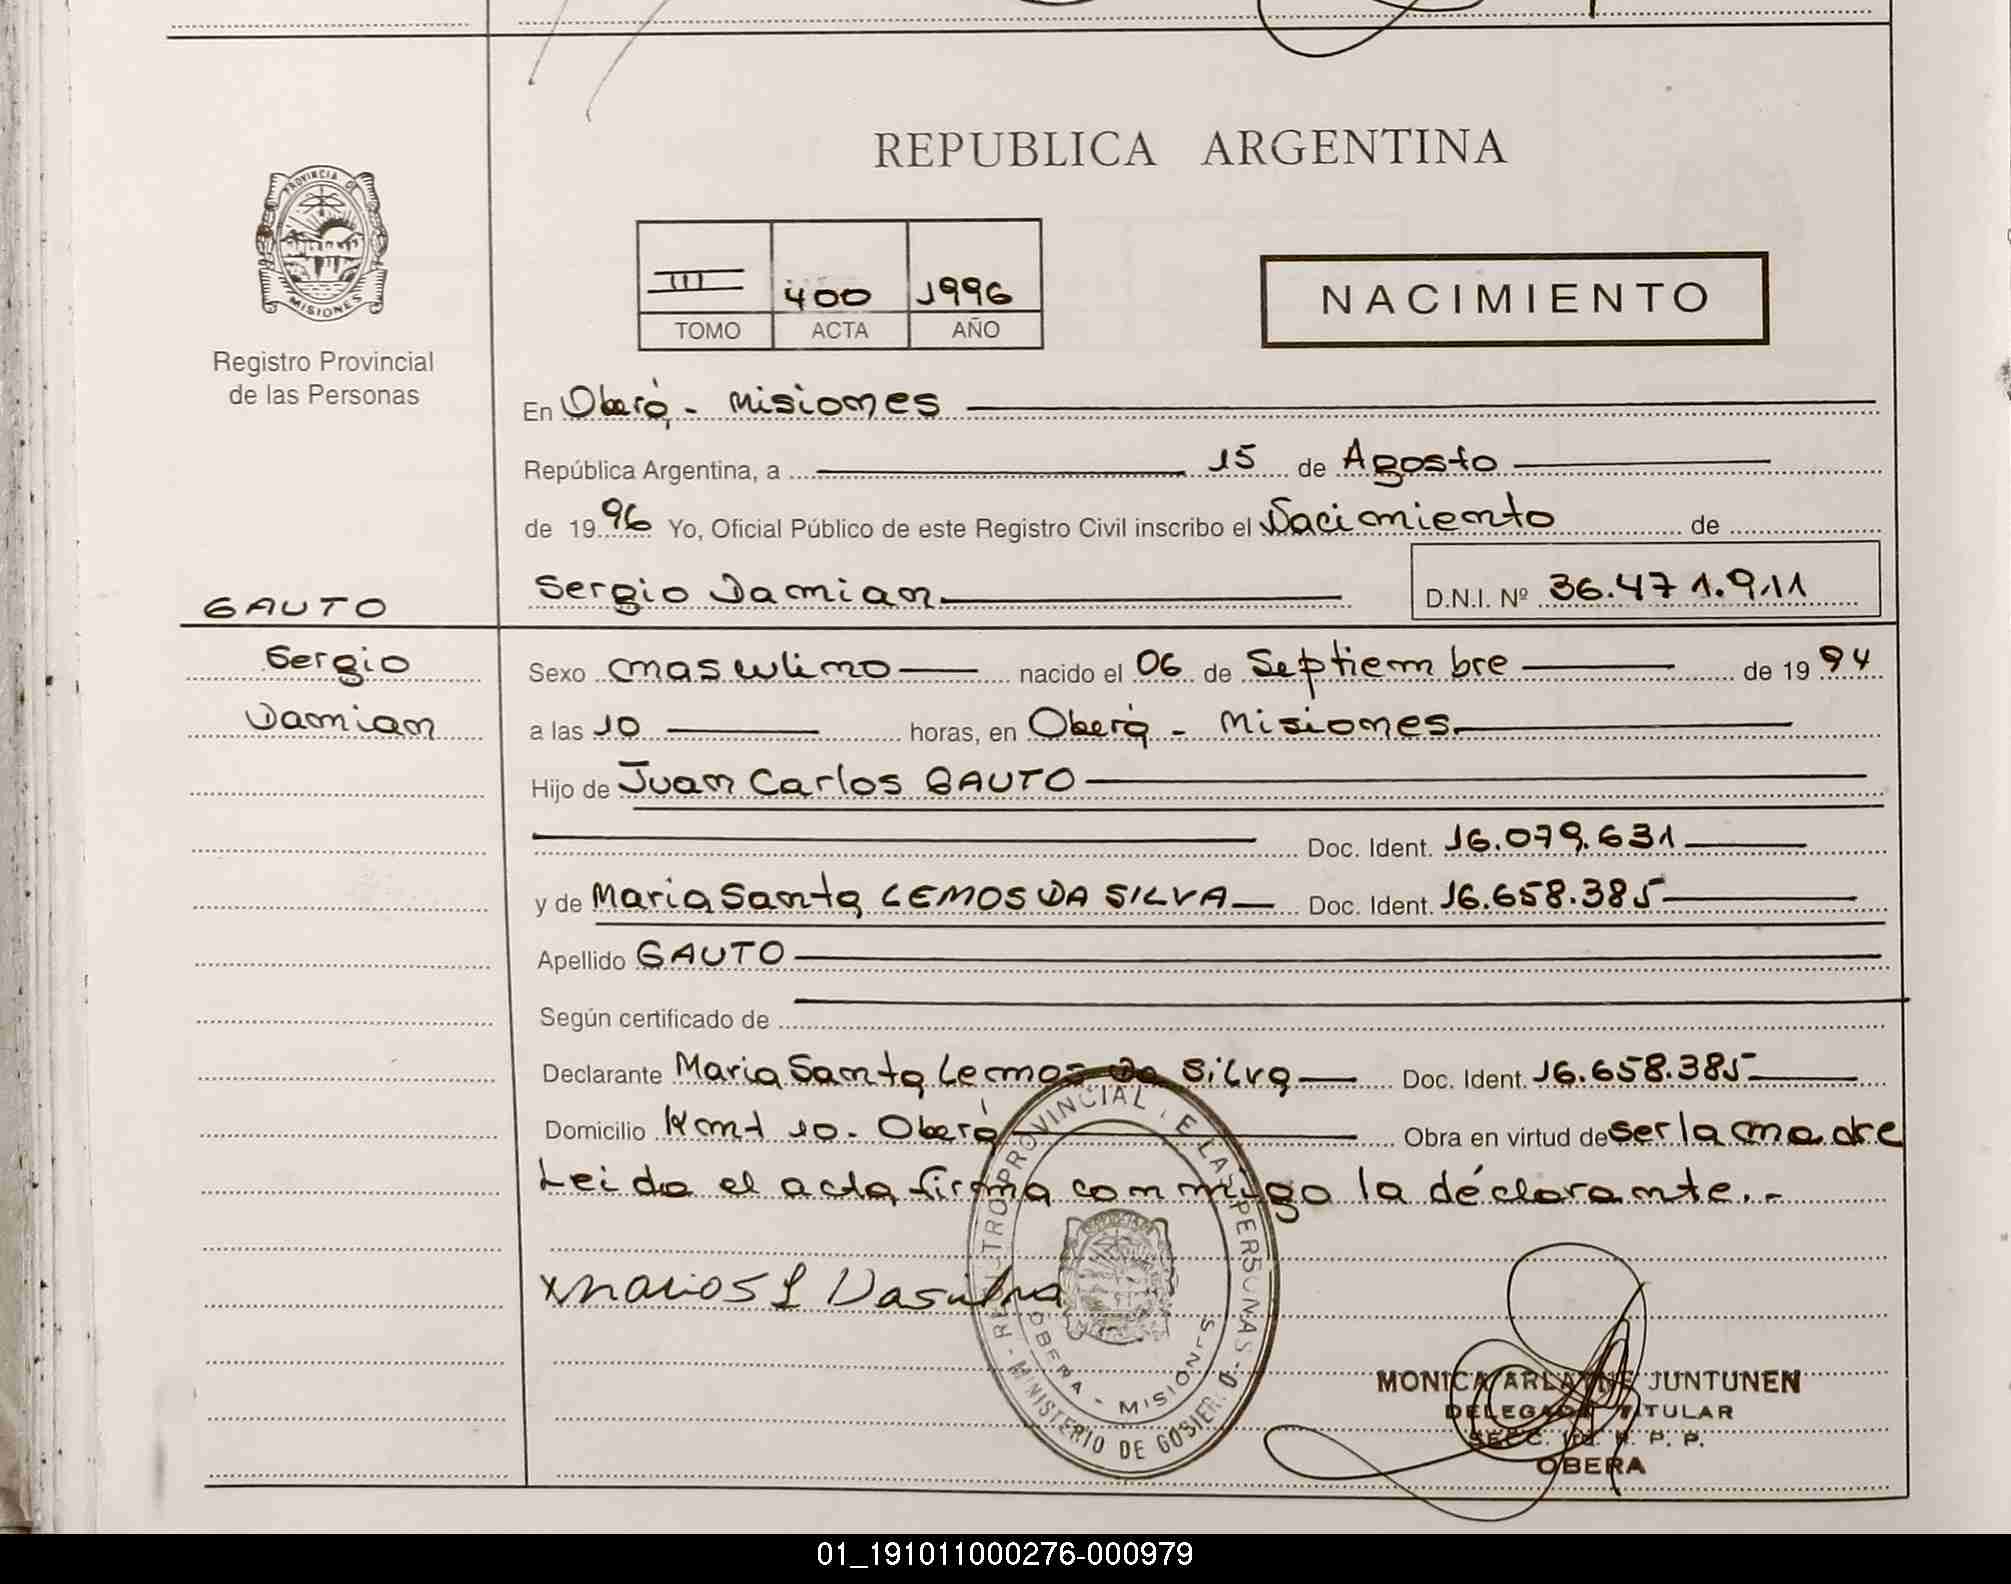 REPUBLICA ARGENTINA
PROVINCIA DE
MISIONES
Registro Provincial
de las Personas
III 400 1996
TOMO ACTA AÑO
NACIMIENTO
En Oberá - Misiones
República Argentina, a 15 de Agosto
de 19 96 Yo, Oficial Público de este Registro Civil inscribo el Nacimiento de
GAUTO
Sergio
Damian
Sergio Damian D.N.I. Nº 36.471.911
Sexo masculino nacido el 06 de Septiembre de 19 94
a las 10 horas, en Oberá - Misiones
Hijo de Juan Carlos GAUTO
Doc. Ident. 16.079.631
y de Maria Santa LEMOS DA SILVA Doc. Ident. 16.658.385
Apellido GAUTO
Según certificado de
Declarante Maria Santa Lemos Da Silva Doc. Ident. 16.658.385
Domicilio Kmt 10 - Oberá Obra en virtud de ser la madre
Leida el acta firma conmigo la declarante.-
REGISTRO PROVINCIAL DE LAS PERSONAS -
MINISTERIO DE GOBIERNO
OBERA - MISIONES
MONICA ARLAINE JUNTUNEN
DELEGADA TITULAR
SECC. R. P. P.
OBERA
01_191011000276-000979